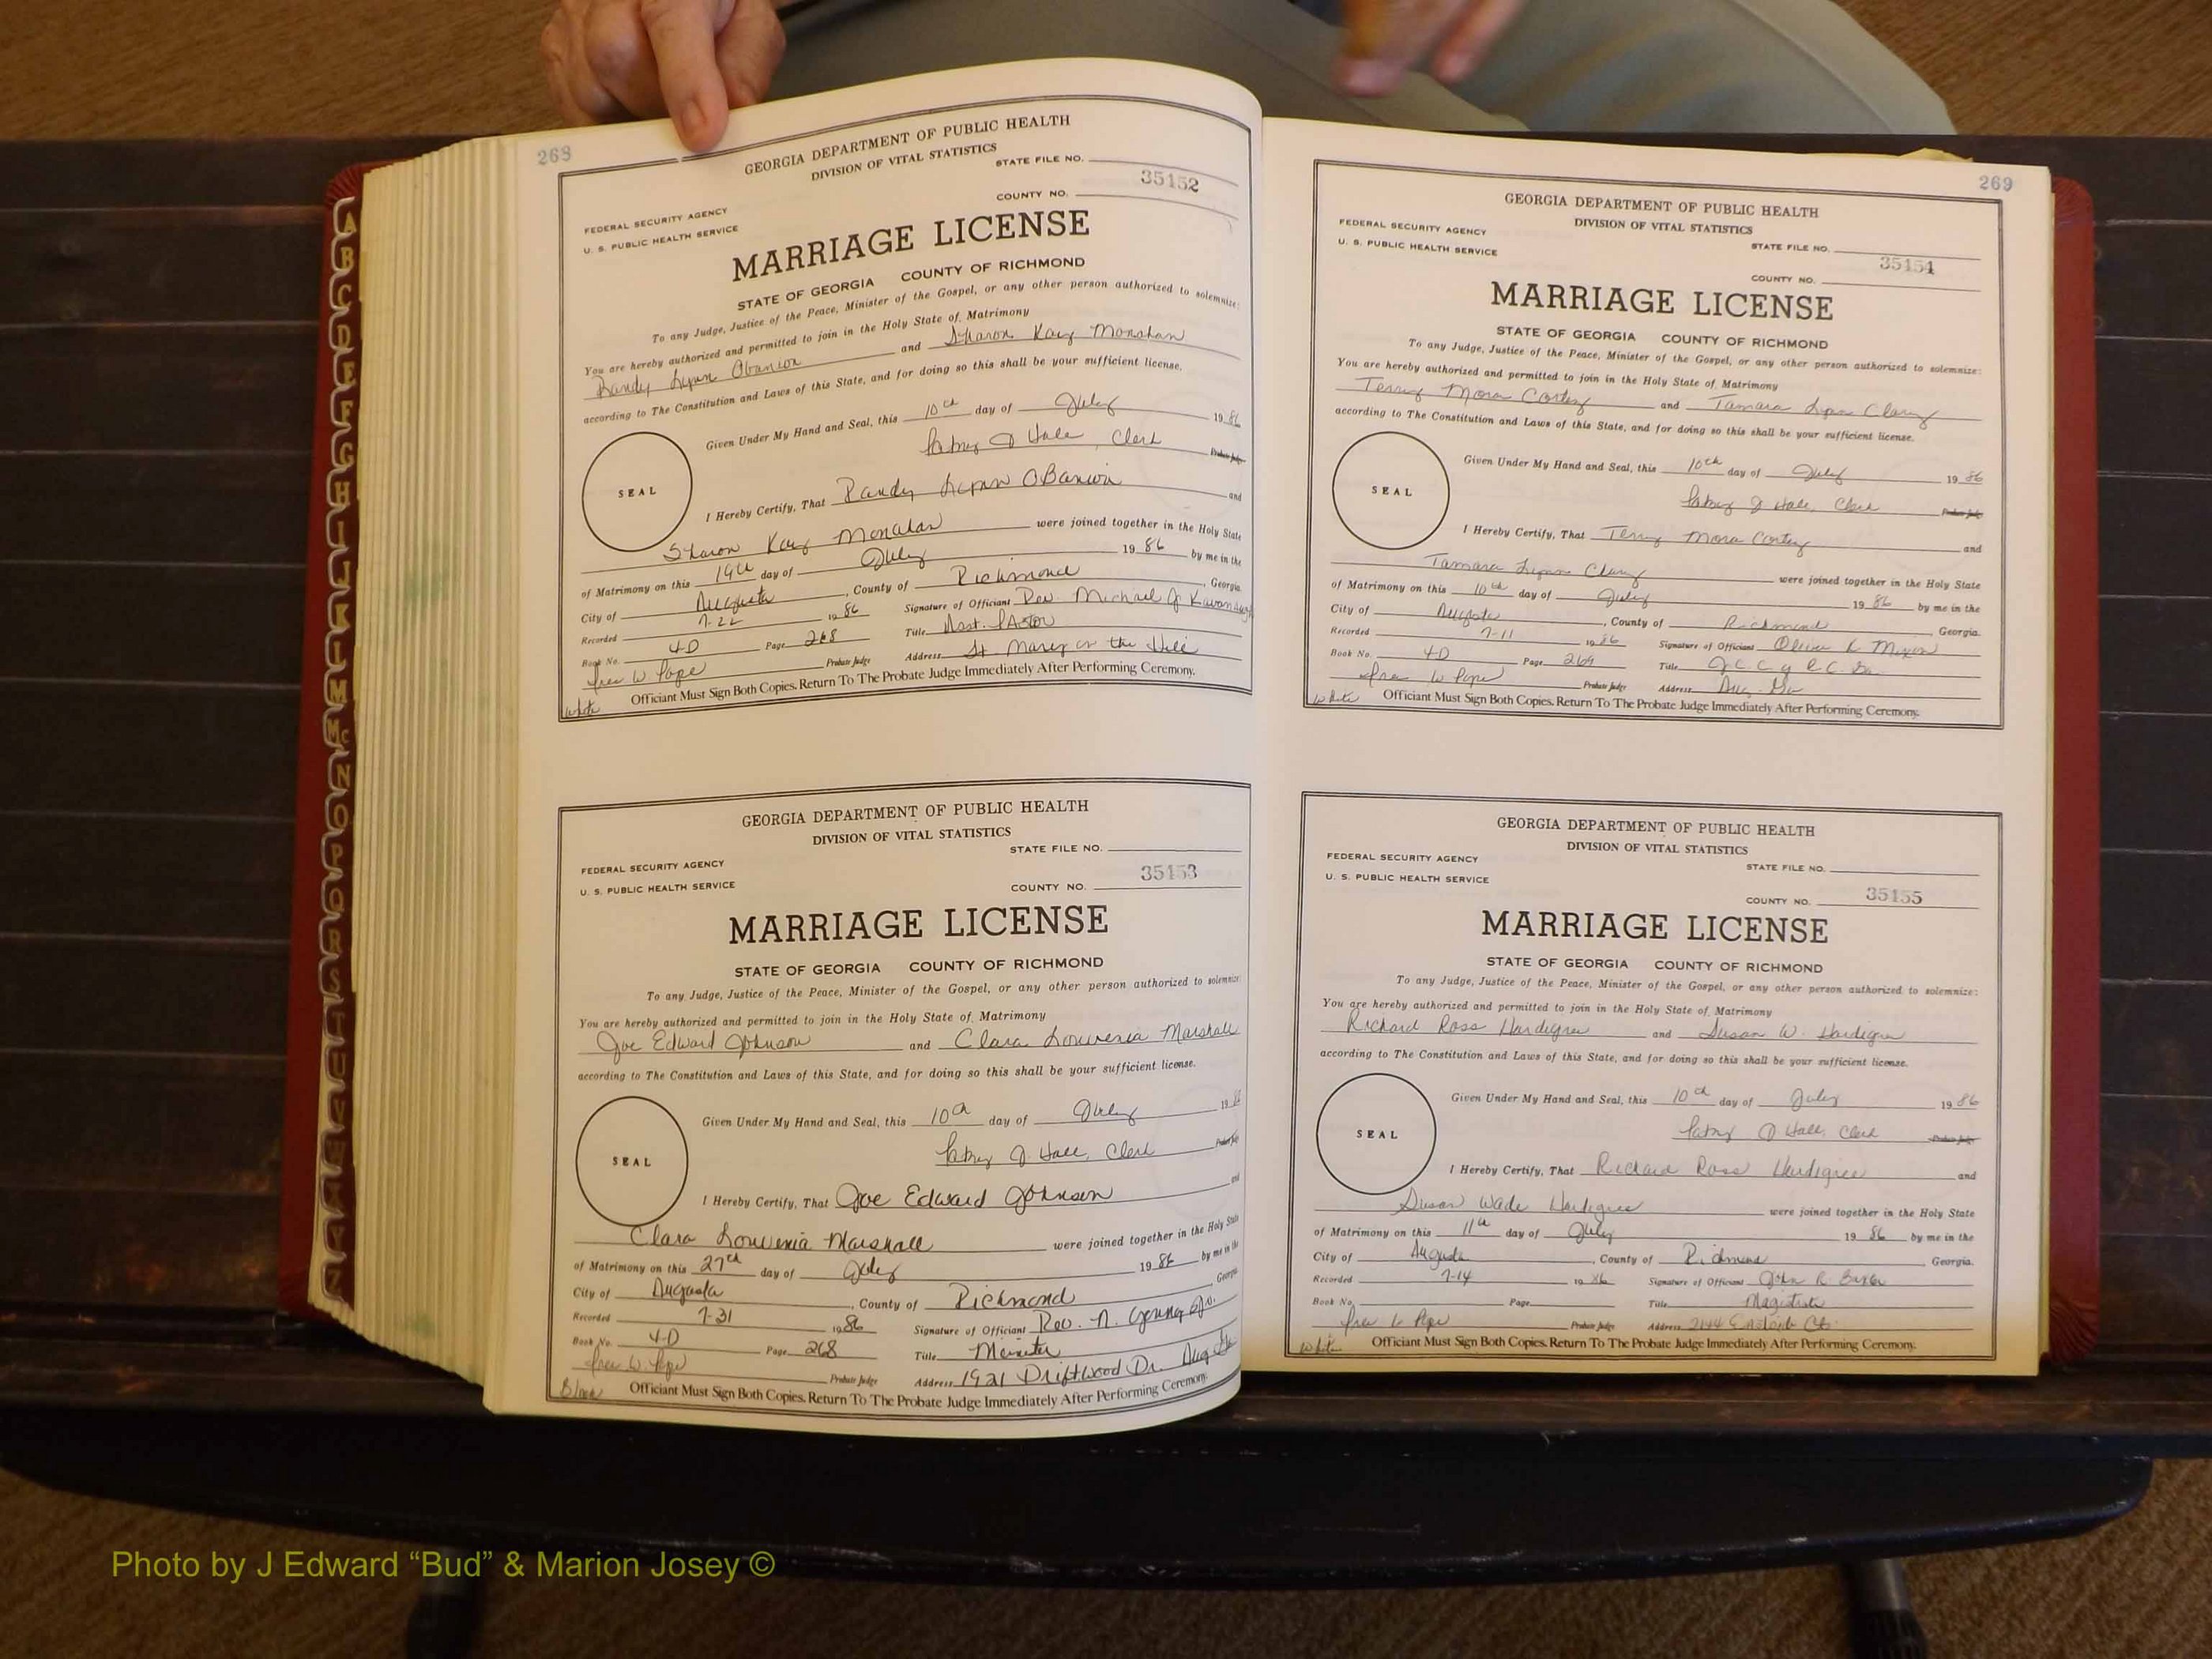 268
GEORGIA DEPARTMENT OF PUBLIC HEALTH
DIVISION OF VITAL STATISTICS
STATE FILE NO.
35152
COUNTY NO.
FEDERAL SECURITY AGENCY
U. S. PUBLIC HEALTH SERVICE
MARRIAGE LICENSE
STATE OF GEORGIA COUNTY OF RICHMOND
To any Judge, Justice of the Peace, Minister of the Gospel, or any other person authorized to solemnize:
You are hereby authorized and permitted to join in the Holy State of Matrimony
Randy Lynn Obanion and Sharon Kay Monahan
according to The Constitution and Laws of this State, and for doing so this shall be your sufficient license.
Given Under My Hand and Seal, this 10th day of July 1986
Patsy J Hall, Clerk Probate Judge
SEAL
I Hereby Certify, That Randy Lynn OBanion and
Sharon Kay Monahan were joined together in the Holy State
of Matrimony on this 19th day of July 1986 by me in the
City of Augusta, County of Richmond, Georgia.
Recorded 7-22 1986 Signature of Officiant Rev. Michael J Kavanaugh
Book No. 4-D Page 268 Title Asst. Pastor
W Pope Probate Judge Address St. Mary on the Hill
White Officiant Must Sign Both Copies. Return To The Probate Judge Immediately After Performing Ceremony.
GEORGIA DEPARTMENT OF PUBLIC HEALTH
DIVISION OF VITAL STATISTICS
STATE FILE NO.
FEDERAL SECURITY AGENCY
35153
U. S. PUBLIC HEALTH SERVICE COUNTY NO.
MARRIAGE LICENSE
STATE OF GEORGIA COUNTY OF RICHMOND
To any Judge, Justice of the Peace, Minister of the Gospel, or any other person authorized to solemnize:
You are hereby authorized and permitted to join in the Holy State of Matrimony
Joe Edward Johnson and Clara Louvenia Marshall
according to The Constitution and Laws of this State, and for doing so this shall be your sufficient license.
Given Under My Hand and Seal, this 10th day of July 1986
Patsy J Hall, Clerk Probate Judge
SEAL
I Hereby Certify, That Joe Edward Johnson and
Clara Louvenia Marshall were joined together in the Holy State
of Matrimony on this 27th day of July 1986 by me in the
City of Augusta, County of Richmond Georgia
Recorded 7-31 1986 Signature of Officiant Rev. N. Young Jr.
Book No. 4-D Page 268 Title Minister
W. Pope Probate Judge Address 1921 Driftwood Dr. Aug Ga
Black Officiant Must Sign Both Copies. Return To The Probate Judge Immediately After Performing Ceremony.
269
GEORGIA DEPARTMENT OF PUBLIC HEALTH
DIVISION OF VITAL STATISTICS
FEDERAL SECURITY AGENCY
U. S. PUBLIC HEALTH SERVICE STATE FILE NO.
35154
COUNTY NO.
MARRIAGE LICENSE
STATE OF GEORGIA COUNTY OF RICHMOND
To any Judge, Justice of the Peace, Minister of the Gospel, or any other person authorized to solemnize:
You are hereby authorized and permitted to join in the Holy State of Matrimony
Terry Mora Cortez and Tamara Lynn Clary
according to The Constitution and Laws of this State, and for doing so this shall be your sufficient license.
Given Under My Hand and Seal, this 10th day of July 1986
Patsy J Hall, Clerk Probate Judge
SEAL
I Hereby Certify, That Terry Mora Cortez and
Tamara Lynn Clary were joined together in the Holy State
of Matrimony on this 10th day of July 1986 by me in the
City of Augusta, County of Richmond, Georgia.
Recorded 7-11 1986 Signature of Officiant Oliver K Mixon
Book No. 4-D Page 269 Title
W Pope Probate Judge Address Aug. Ga
White Officiant Must Sign Both Copies. Return To The Probate Judge Immediately After Performing Ceremony.
GEORGIA DEPARTMENT OF PUBLIC HEALTH
DIVISION OF VITAL STATISTICS
FEDERAL SECURITY AGENCY
STATE FILE NO.
U. S. PUBLIC HEALTH SERVICE
35155
COUNTY NO.
MARRIAGE LICENSE
STATE OF GEORGIA COUNTY OF RICHMOND
To any Judge, Justice of the Peace, Minister of the Gospel, or any other person authorized to solemnize:
You are hereby authorized and permitted to join in the Holy State of Matrimony
Richard Ross Hardigree and Susan W. Hardigree
according to The Constitution and Laws of this State, and for doing so this shall be your sufficient license.
Given Under My Hand and Seal, this 10th day of July 1986
Patsy J Hall, Clerk Probate Judge
SEAL
I Hereby Certify, That Richard Ross Hardigree and
Susan Wade Hardigree were joined together in the Holy State
of Matrimony on this 11th day of July 1986 by me in the
City of Augusta, County of Richmond, Georgia.
Recorded 7-14 1986 Signature of Officiant John R Baxter
Book No. Page Title Magistrate
W Pope Probate Judge Address 2144 Eastside Ct.
White Officiant Must Sign Both Copies. Return To The Probate Judge Immediately After Performing Ceremony.
Photo by J Edward “Bud” & Marion Josey ©